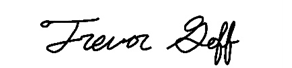 Trevor Goff